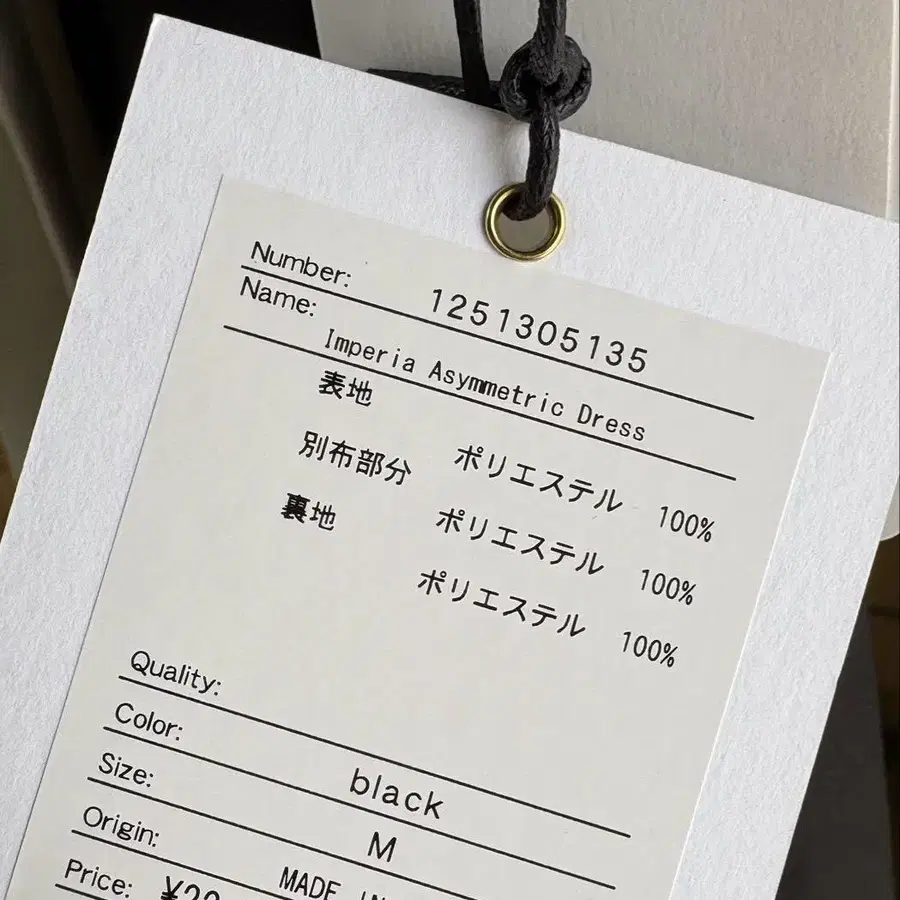 Number: 1251305135
Name: Imperia Asymmetric Dress
表地 ポリエステル 100%
別布部分 ポリエステル 100%
裏地 ポリエステル 100%
Quality:
Color: black
Size: M
Origin: MADE IN
Price: